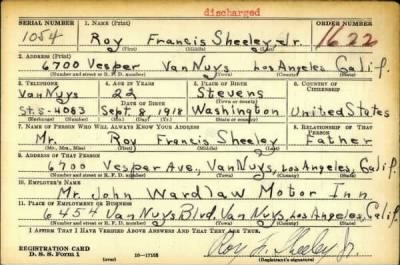 discharged
SERIAL NUMBER 1. NAME (Print) ORDER NUMBER
1054 Roy Francis Sheeley Jr. 1622
(First) (Middle) (Last)
2. ADDRESS (Print)
6700 Vesper Van Nuys Los Angeles Calif.
(Number and street or R. F. D. number) (Town) (County) (State)
3. TELEPHONE 4. AGE IN YEARS 5. PLACE OF BIRTH 6. COUNTRY OF CITIZENSHIP
Van Nuys 22 Stevens
DATE OF BIRTH (Town or county)
St. 8-4083 Sept. 8, 1918 Washington United States
(Exchange) (Number) (Mo.) (Day) (Yr.) (State or country)
7. NAME OF PERSON WHO WILL ALWAYS KNOW YOUR ADDRESS 8. RELATIONSHIP OF THAT PERSON
Mr. Roy Francis Sheeley Father
(Mr., Mrs., Miss) (First) (Middle) (Last)
9. ADDRESS OF THAT PERSON
6700 Vesper Ave., Van Nuys, Los Angeles, Calif.
(Number and street or R. F. D. number) (Town) (County) (State)
10. EMPLOYER'S NAME
Mr. John Wardlaw Motor Inn
11. PLACE OF EMPLOYMENT OR BUSINESS
6454 Van Nuys Blvd. Van Nuys, Los Angeles, Calif.
(Number and street or R. F. D. number) (Town) (County) (State)
I AFFIRM THAT I HAVE VERIFIED ABOVE ANSWERS AND THAT THEY ARE TRUE.
REGISTRATION CARD
D. S. S. FORM 1 16-17105 Roy F. Sheeley Jr.
(Registrant's signature)